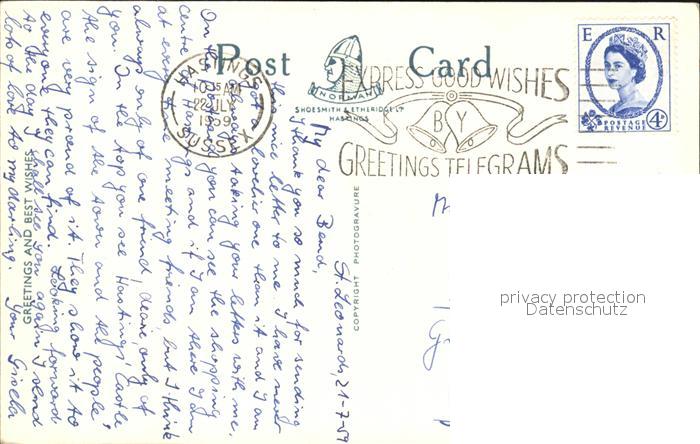 Post Card
NORMAN
SHOESMITH & ETHERIDGE LTD
HASTINGS
HASTINGS
10.15 AM
22 JLY
1959
SUSSEX
EXPRESS GOOD WISHES
BY
GREETINGS TELEGRAMS
E R
POSTAGE
REVENUE
4D
COPYRIGHT PHOTOGRAVURE
GREETINGS AND BEST WISHES
St. Leonards, 21-7-59
My dear Bernd,
Thank you so much for sending
this nice letter to me. I have never
got a lovelier one than it and I am
always taking your letters with me.
On this card you can see the shopping
centre of Hastings and if I am there I am
at every time meeting friends but I think
always only of one friend, desire, only of
you. On the top you see Hastings, Castle
the sign of the town and the people
are very proud of it. They show it to
everyone they can find. Looking forward
to the day I shall see you again I send
lots of love to my darling. Your Gisela
privacy protection
Datenschutz